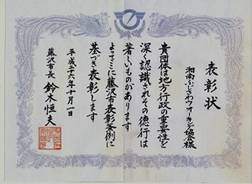 表彰状
湘南ふじさわウオーキング協会様
貴団体は地方行政の重要性を
深く認識されその徳行は
著しいものがあります
よってここに藤沢市表彰条例に
基づき表彰します
平成二十六年十月一日
藤沢市長 鈴木恒夫